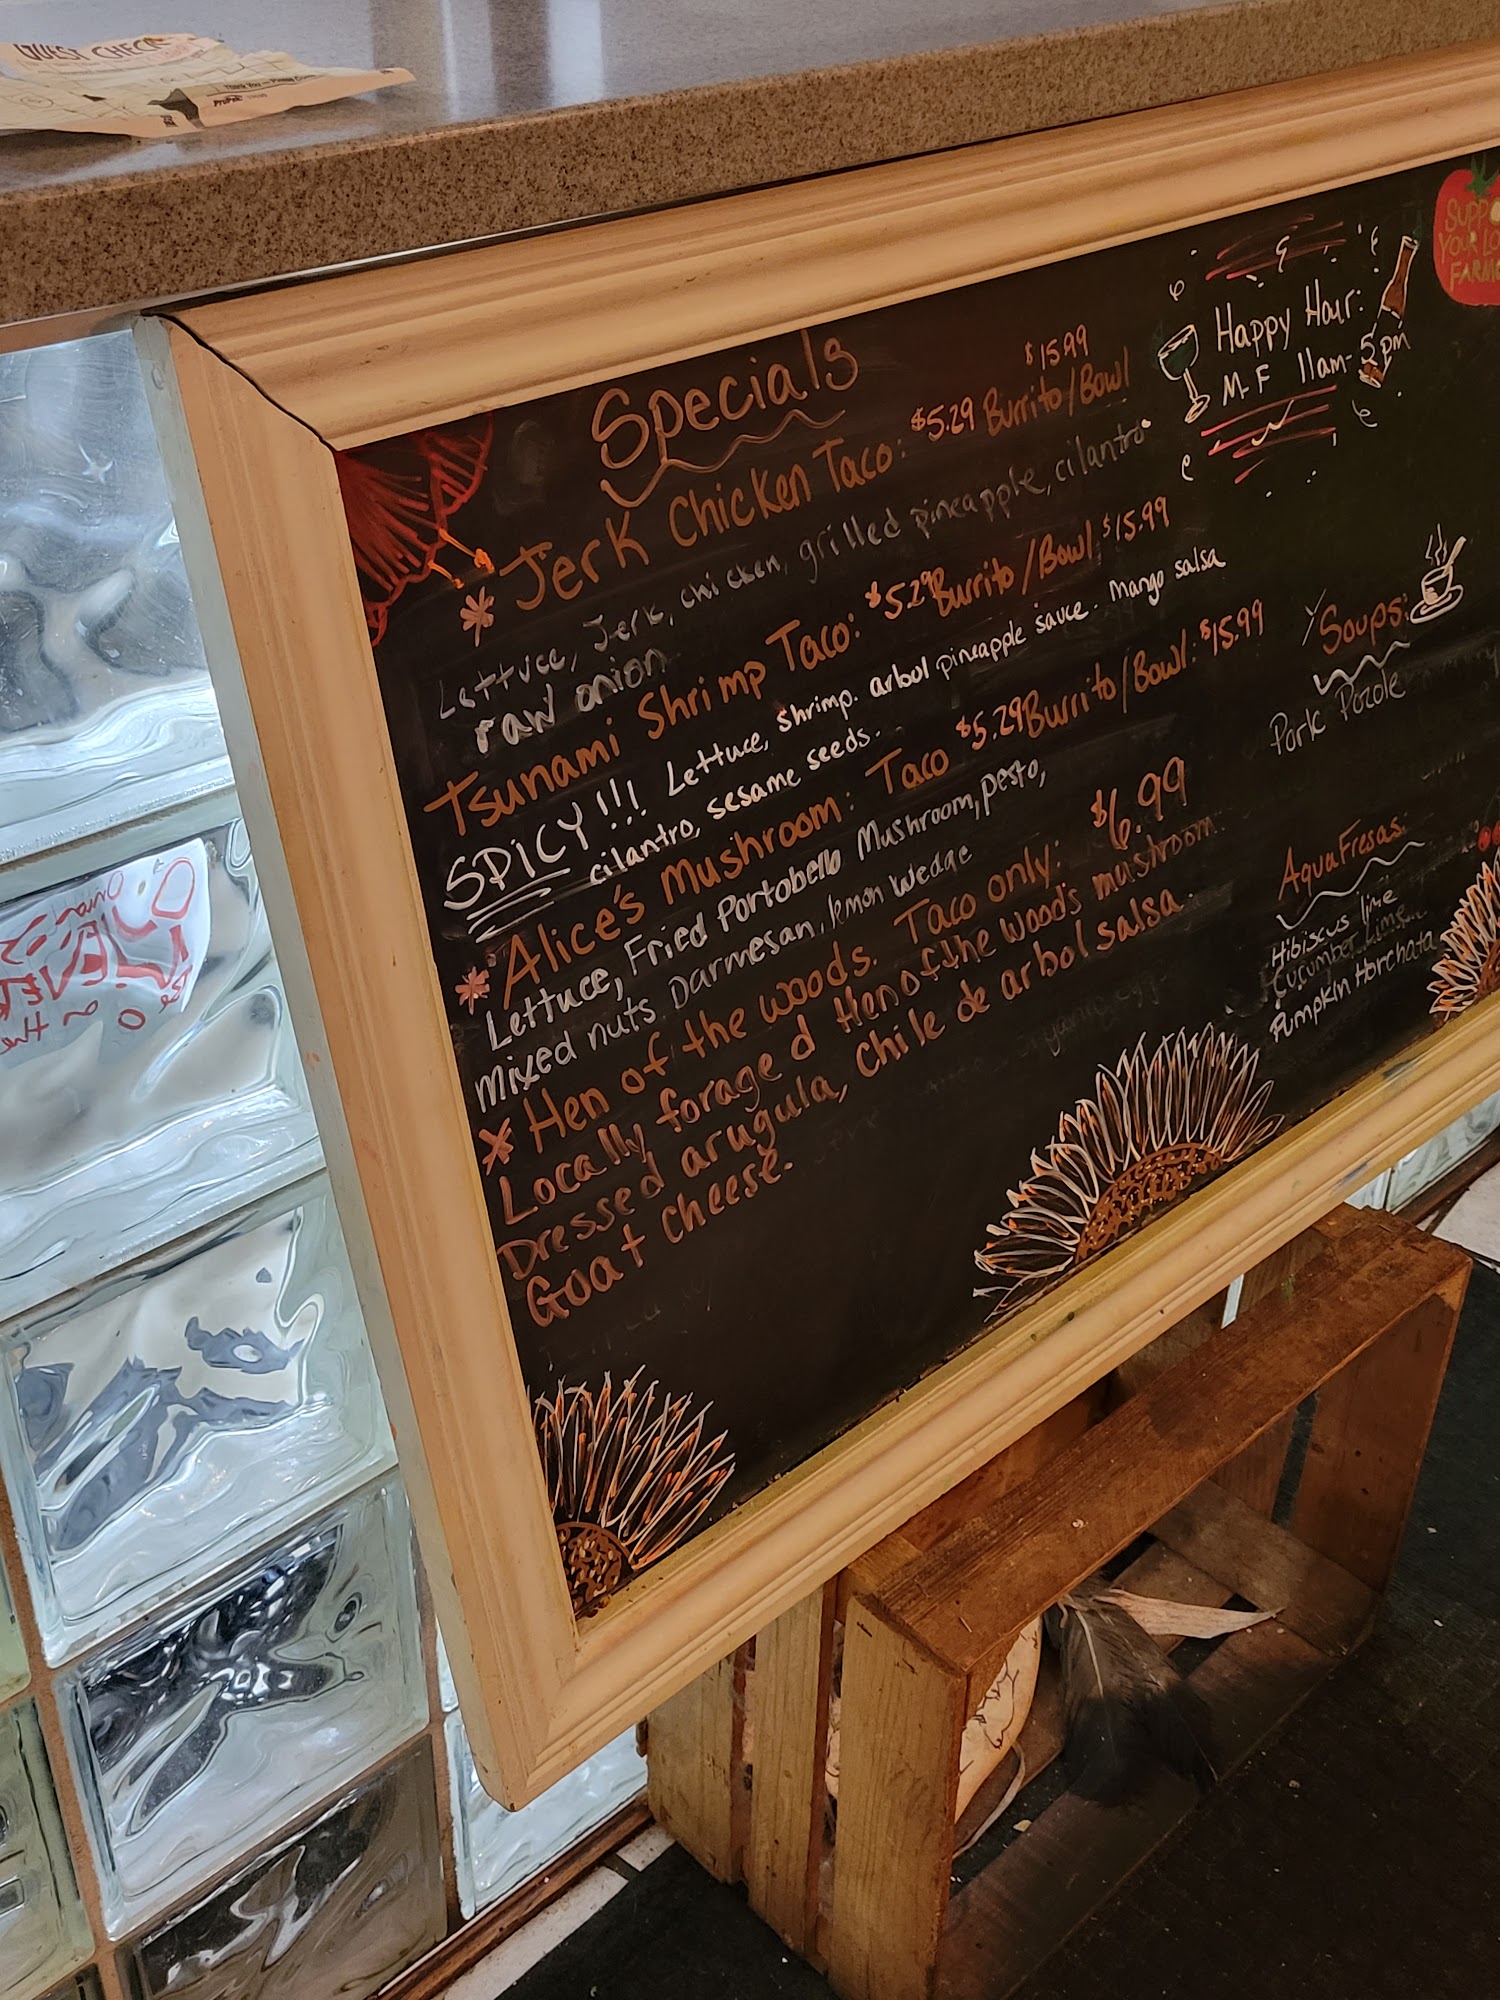 GUEST CHECK
Thank You
ProPak
Specials
Jerk Chicken Taco: $5.29 Burrito/Bowl
$15.99
Lettuce, Jerk, chicken, grilled pineapple, cilantro
raw onion
Tsunami Shrimp Taco: $5.29 Burrito/Bowl: $15.99
SPICY!!! Lettuce, shrimp. arbol pineapple sauce. Mango salsa
cilantro, sesame seeds.
Alice's Mushroom: Taco $5.29 Burrito/Bowl: $15.99
Lettuce, Fried Portobello Mushroom, pesto,
mixed nuts. Darmesan, lemon wedge
Hen of the woods. Taco only: $6.99
Locally foraged Hen of the woods mushroom.
Dressed arugula, chile de arbol salsa.
Goat cheese.
Happy Hour:
M-F 11am-5pm
SUPPO
YOUR LO
FARM
Soups:
Pork Pozole
Agua Fresas:
Hibiscus lime
Cucumber Lime
Pumpkin Horchata